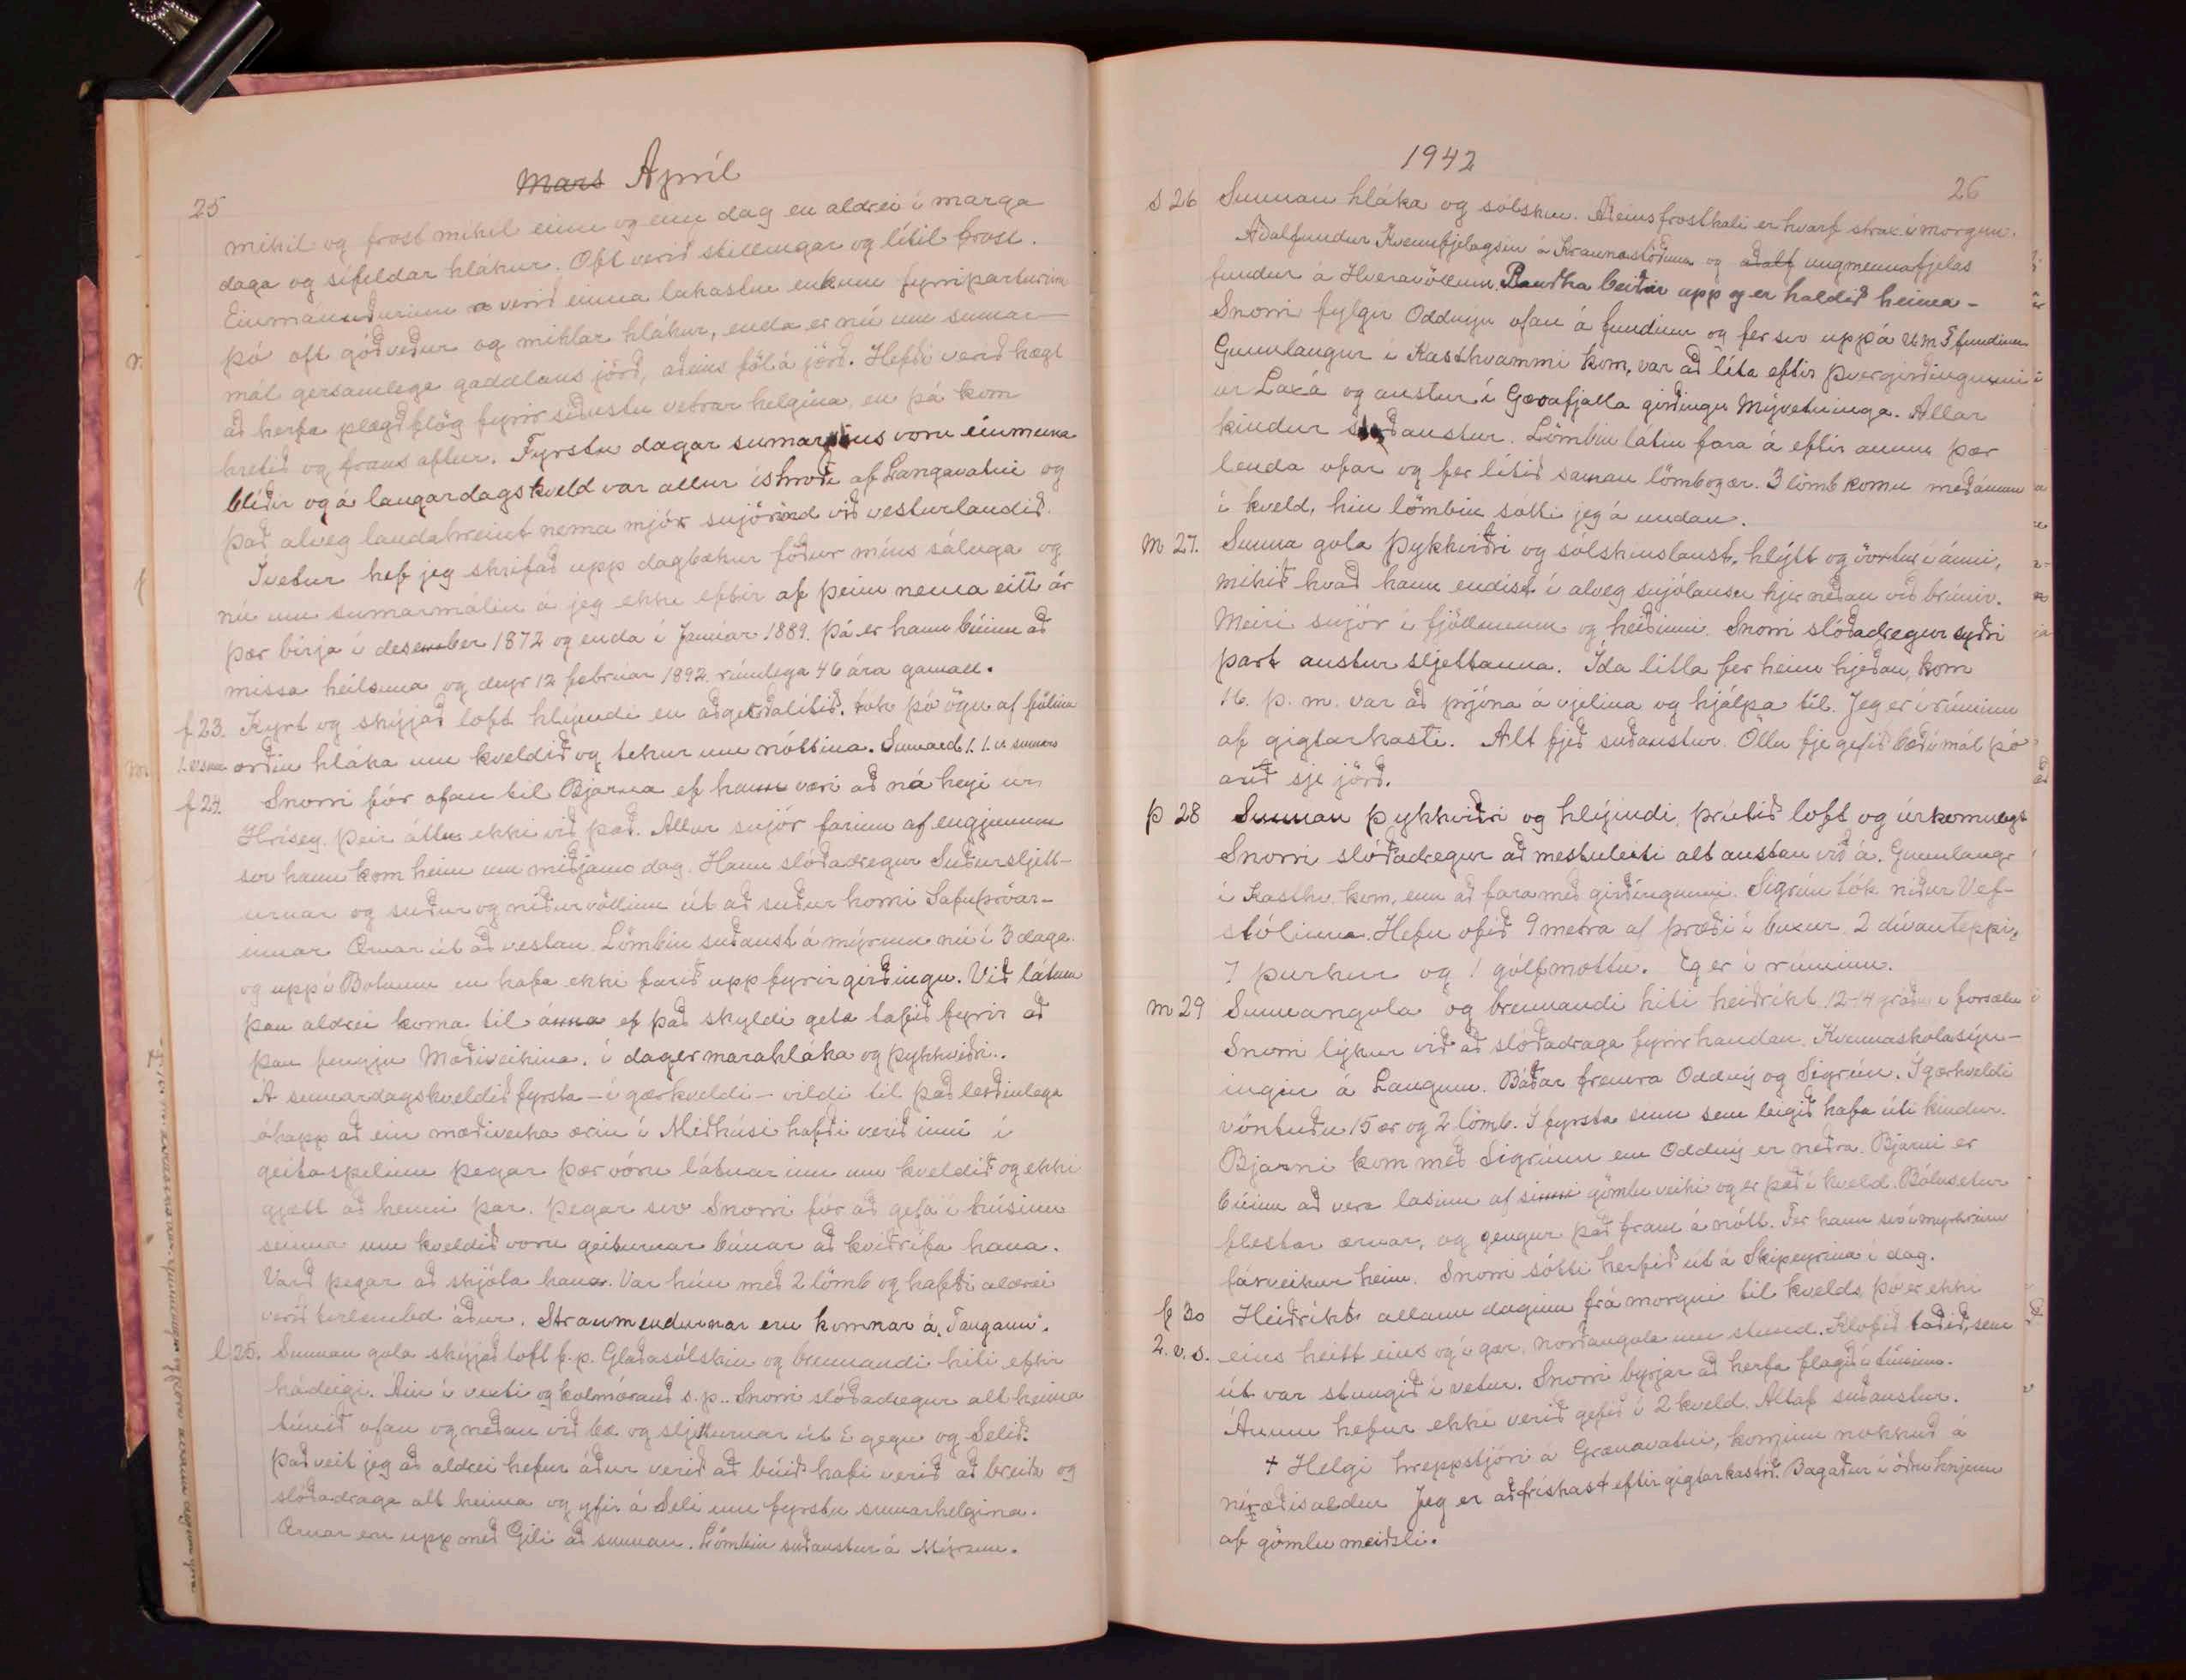 25
Mars Apríl
mikil og frost mikil einn og einn dag en aldrei í marga
daga og sífeldar hlákur. Oft verið stillingar og lítil frost.
Einmánuðurinn verið einna lakastur einkum fyrriparturinn
þó oft góðveður og miklar hlákur, enda er nú um sumar-
mál gersamlega gaddlaus jörð, aðeins föl á jörð. Hefði verið hægt
að herfa plægð flög fyrir síðustu vetrar helgina, en þá kom
hretið og fraus aftur. Fyrstu dagar sumarsins voru einmuna
blíðir og á laugardagskveld var allur íshroði af Langavatni og
það alveg landahreint nema mjór snjórönd við vesturlandið.
Ívetur hef jeg skrifað upp dagbækur föður míns sáluga og
nú um sumarmálin á jeg ekki eftir af þeim nema eitt ár
þær birja í desember 1872 og enda í Janúar 1889. Þá er hann búinn að
missa heilsuna og deyr 12 febrúar 1892. rúmlega 46 ára gamall.
f 23. Kyrt og skýjað loft hlýindi en aðgerðalítið. tók þó ögn af fölinu
1. v. sum orðin hláka um kveldið og tekur um nóttina. Sumard. 1. 1. v. sumars
f 24. Snorri fór ofan til Bjarna ef hann væri að ná heyi úr
Hrísey. Þeir áttu ekki við það. Allur snjór farinn af engjunum
svo hann kom heim um miðjann dag. Hann slóðadregur Suðursljett-
urnar og suður og niðurvöllinn út að suður horni Safnþróar-
innar Ærnar út að vestan. Lömbin suðaust á mýrum nú í 3 daga.
og upp í Botnum en hafa ekki farið upp fyrir girðingu. Við látum
þau aldrei koma til ánna ef það skyldi geta tafið fyrir að
þau fengju Mæðiveikina. í dag er marahláka og þykkviðri.
Á sumardagskveldið fyrsta - í gærkveldi - vildi til það leiðinlega
óhapp að ein mæðiveika ærin í Miðhúsi hafði verið inni í
geitaspelinu þegar þær vóru látnar inn um kveldið og ekki
gætt að henni þar. Þegar svo Snorri fór að gefa í húsinu
seinna um kveldið voru geiturnar búnar að kviðrífa hana.
Varð þegar að skjóta hana. Var hún með 2 lömb og hafði aldrei
verið tvílembd áður. Straumendurnar eru komnar á "Tangann".
l 25. Sunnan gola skýjað loft f.p. Glaðasólskin og brennandi hiti eftir
hádeigi. Áin í vexti og kolmórauð s.p. Snorri slóðadregur alt heima
túnið ofan og neðan við bæ og sljetturnar út í gegn og Selið.
Það veit jeg að aldrei hefur áður verið að búið hafi verið að breiða og
slóðadraga alt heima og yfir á Seli um fyrstu sumarhelgina.
Ærnar eru upp með Gili að sunnan. Lömbin suðaustur á Mýrum.
1942
26
s 26 Sunnan hláka og sólskin. Aðeins frostkali er hvarf strax í morgun.
Aðalfundur Kvennfjelagsins á Hraunastöðum og aðalf ungmennafjelas
fundur á Hveravöllum. Rauðka beiðir upp og er haldið heima -
Snorri fylgir Oddnýu ofan á fundinn og fer svo uppá UMF fundinn
Gunnlaugur í Kasthvammi kom, var að líta eftir þvergirðingunni
úr Laxá og austur í Gæsafjalla girðingu Mývetninga. Allar
kindur suðaustur. Lömbin látin fara á eftir ánum þær
lenda ofar og fer lítið saman lömb og ær. 3 lömb komu með ánum
í kveld, hin lömbin sótti jeg á undan.
m 27. Sunna gola þykkviðri og sólskinslaust, hlýtt og vöxtur í ánni,
mikið hvað hann endist í alveg snjólausu hjer neðan við brúnir.
Meiri snjór í fjöllunum og heiðinni. Snorri slóðadregur syðri
part austur sljettanna. Ída litla fer heim hjeðan, kom
16. þ. m. var að prjóna á vjelina og hjálpa til. Jeg er í rúminu
af gigtarkasti. Alt fjeð suðaustur. Öllu fje gefið bæði mál þó
auð sje jörð.
þ 28 Sunnan þykkviðri og hlýindi, þrútið loft og úrkomulegt
Snorri slóðadregur að mestuleiti alt austan við á. Gunnlaugr
í Kasthv. kom, enn að fara með girðingunni. Sigrún tók niður Vef-
stólinn. Hefu ofið 9 metra af þræði í buxur 2 dívanteppi,
7 þurkur og 1 gólfmottu. Eg er í rúminu.
m 29 Sunnangola og brennandi hiti heiðríkt 12-14 gráður í forsælu
Snorri lýkur við að slóðadraga fyrir handan. Kvennaskólasýn-
ingin á Laugum. Báðar fremra Oddný og Sigrún. Í gærkveldi
vöntuðu 15 ær og 2 lömb. Í fyrsta sinn sem leigið hafa úti kindur.
Bjarni kom með Sigrúnu en Oddný er neðra. Bjarni er
búinn að vera lasinn af sinni gömlu veiki og er það í kveld. Bólusetur
flestar ærnar, og gengur það fram á nótt. Fer hann svo í myrkrinu
fárveikur heim. Snorri sótti herfið út á Skipeyrina í dag.
f 30 Heiðríkt allann daginn frá morgni til kvelds, þó er ekki
2. v. s. eins heitt eins og í gær, norðangola um stund. Klofið taðið, sem
út var stungið í vetur. Snorri byrjar að herfa flagið í túninu.
Ánum hefur ekki verið gefið í 2 kveld. Altaf suðaustur.
+ Helgi hreppstjóri á Grænavatni, kominn nokkuð á
níræðisaldur Jeg er að frískast eftir gigtarkastið. Bagaður í öðru hnjenu
af gömlu meiðsli.